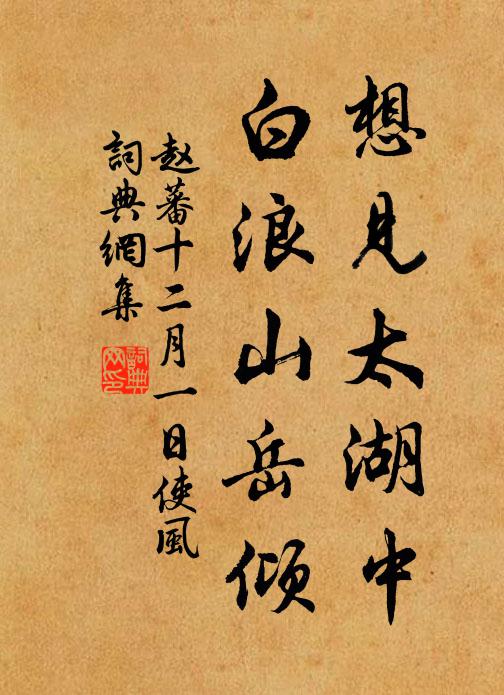 想見太湖中
白浪山岳傾
赵蕃十二月一日使風
詞典網集
詞典网印